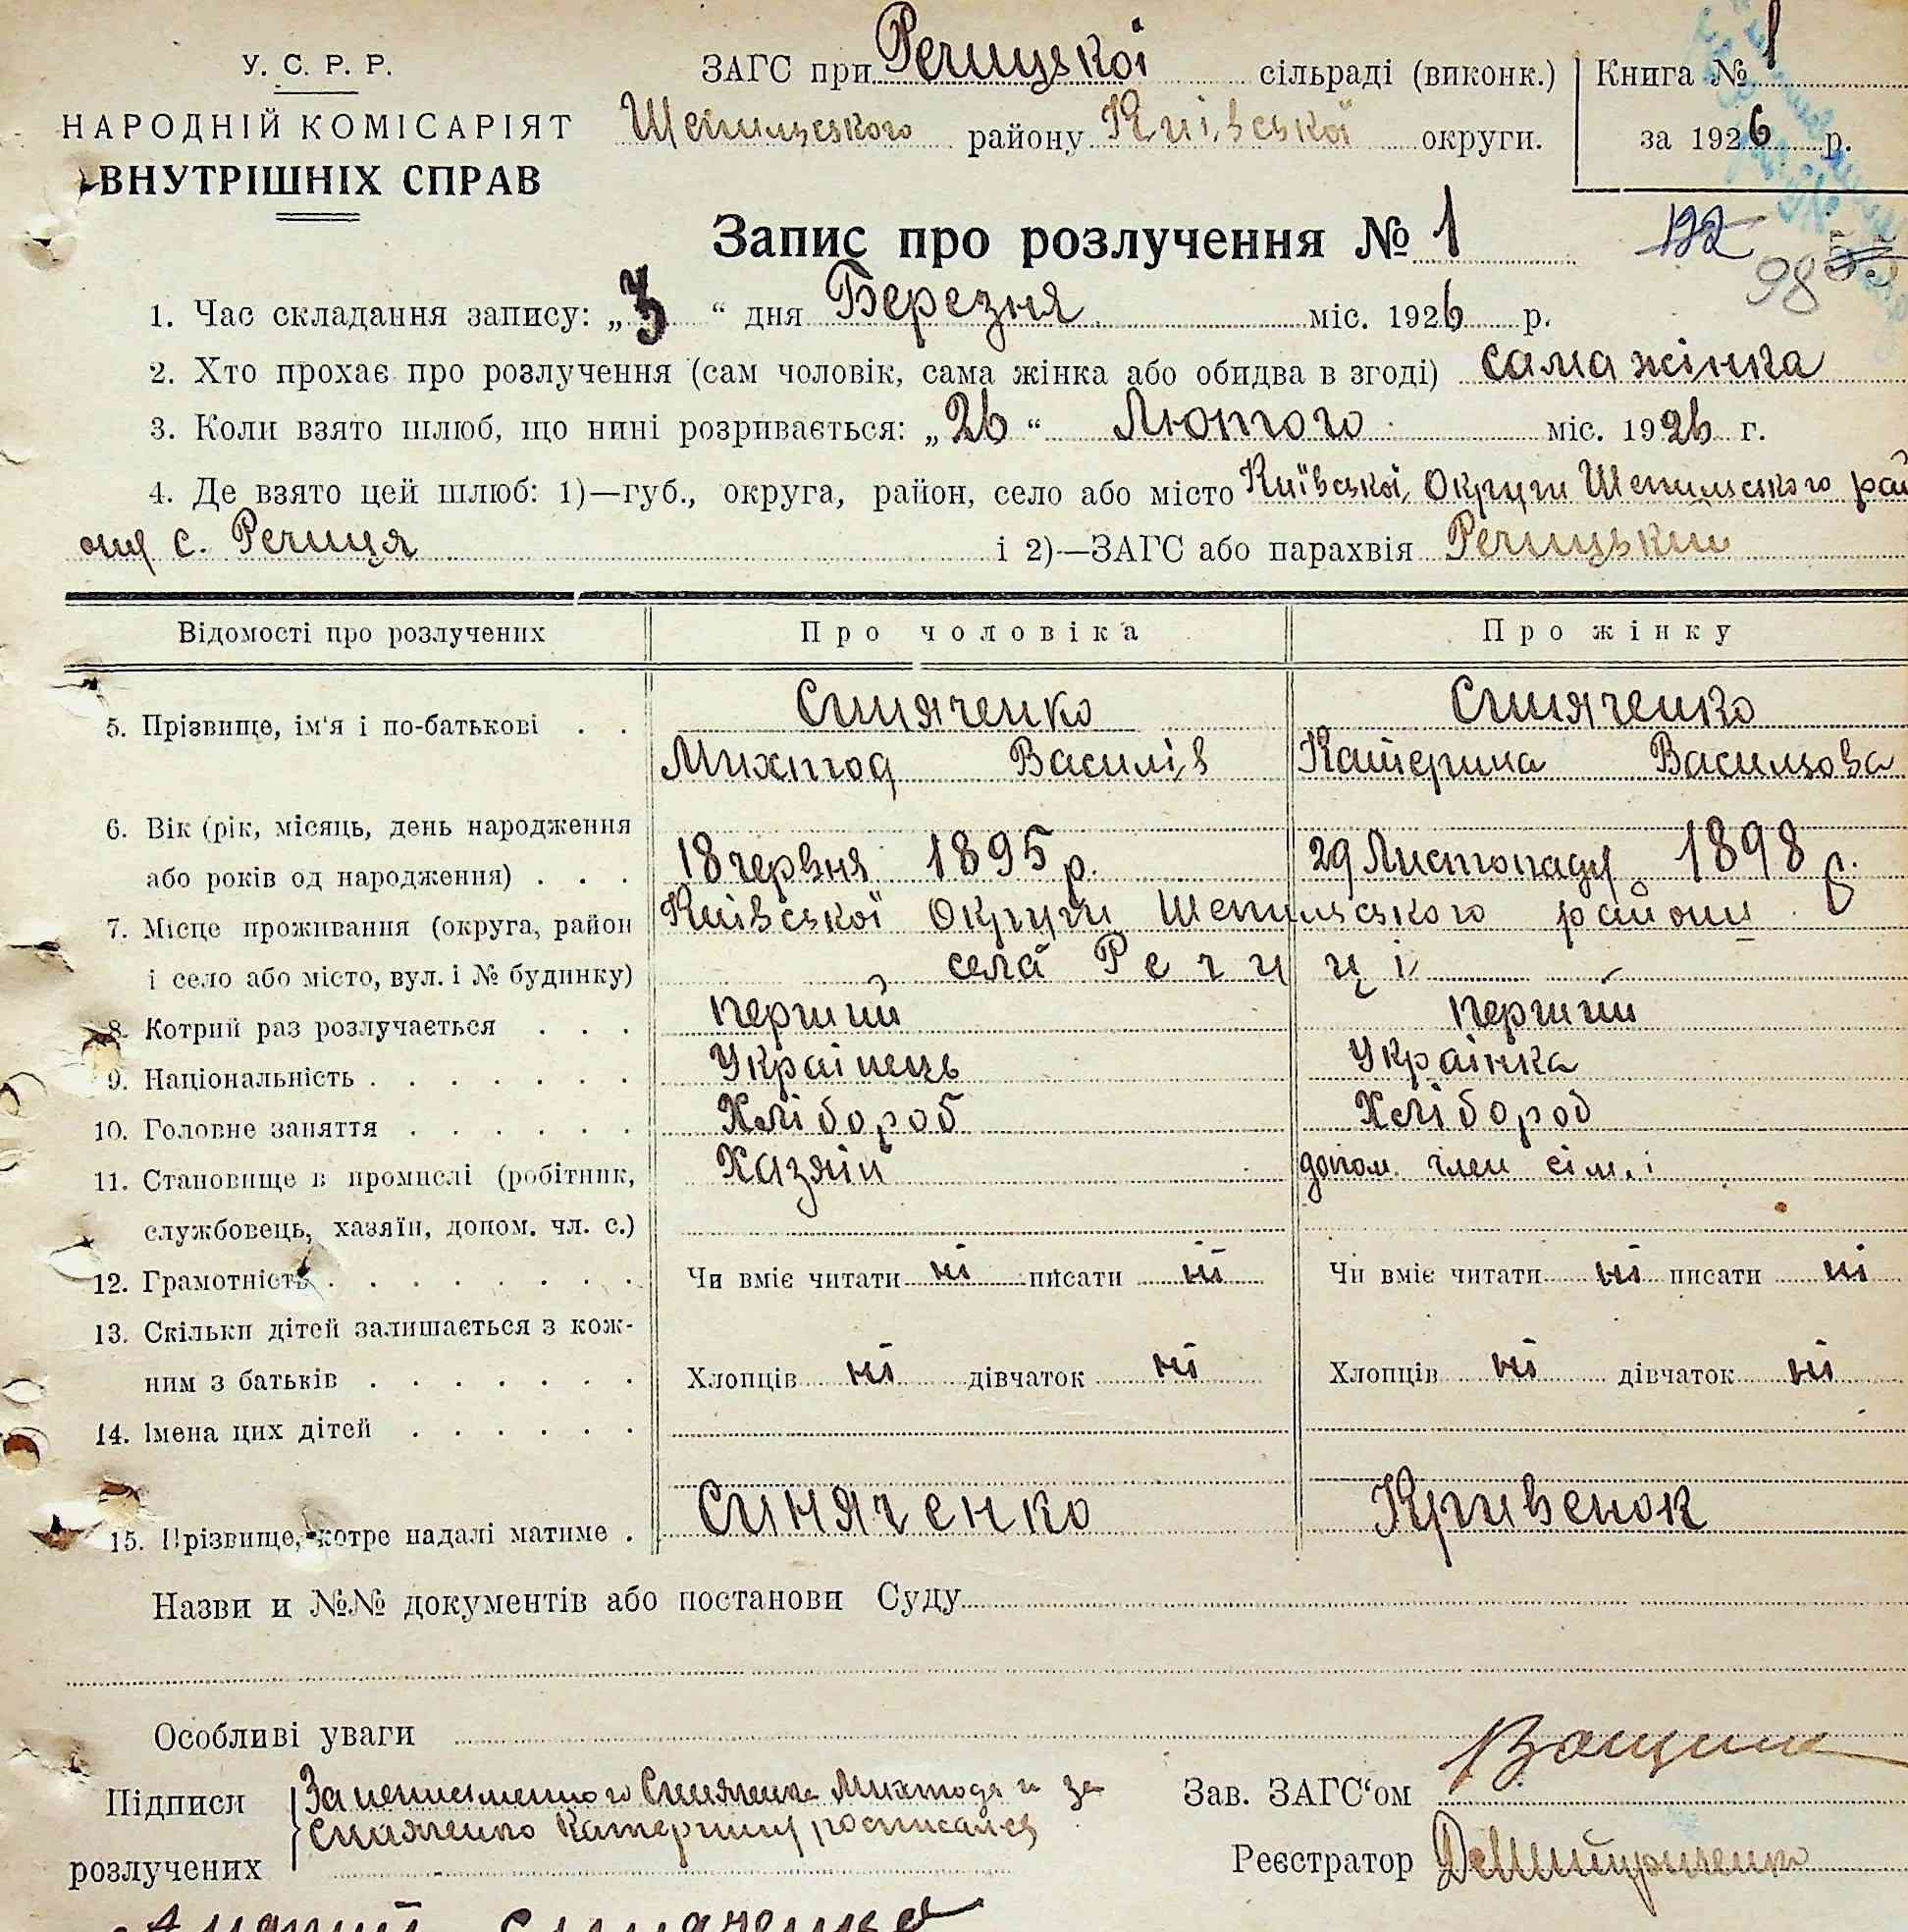 У. С. Р. Р.
НАРОДНІЙ КОМІСАРІЯТ
ВНУТРІШНІХ СПРАВ
ЗАГС при Речицькоі сільраді (виконк.)
Шепилиського району Київськоі округи.
Книга № 1
за 1926 р.
Запис про розлучення № 1
122
98
1. Час складання запису: „3“ дня Березня міс. 1926 р.
2. Хто прохає про розлучення (сам чоловік, сама жінка або обидва в згоді) сама жінка
3. Коли взято шлюб, що нині розривається: „26“ Лютого міс. 1926 г.
4. Де взято цей шлюб: 1)—губ., округа, район, село або місто Київськоі Округи Шепилиського рай
ону с. Речиця і 2)—ЗАГС або парахвія Речицький
Відомості про розлучених Про чоловіка Про жінку
5. Прізвище, ім'я і по-батькові . . Синяченко Синяченко
Михтод Василів Катерина Васильова
6. Вік (рік, місяць, день народження
або років од народження) . . . 18 червня 1895 р. 29 Листопаду 1898 р.
7. Місце проживання (округа, район Київськоі Округи Шепилиського району
і село або місто, вул. і № будинку) села Речиці
8. Котрий раз розлучається . . . перший перший
9. Національність . . . . . . . Украінець Украінка
10. Головне заняття . . . . . . Хлібороб Хлібороб
11. Становище в промислі (робітник, Хазяін допом. член сім.і
службовець, хазяїн, допом. чл. с.)
12. Грамотність . . . . . . . . Чи вміє читати ні писати ні Чи вміє читати ні писати ні
13. Скільки дітей залишається з кож-
ним з батьків . . . . . . . Хлопців ні дівчаток ні Хлопців ні дівчаток ні
14. Імена цих дітей . . . . . .
15. Прізвище, котре надалі матиме . Синяченко Кривенок
Назви и №№ документів або постанови Суду
Особливі уваги
Підписи За неписьменного Синяченка Михтодя и за
Синяченко Катерину росписался
розлучених
Зав. ЗАГС‘ом
Реєстратор
Синяченко